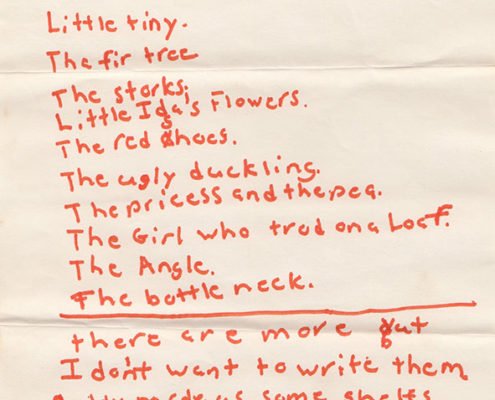 Little tiny.
The fir tree
The storks;
Little Ida's Flowers.
The red shoes.
The ugly duckling.
The pricess and the pea.
The Girl who trod on a Loaf.
The Angle.
The bottle neck.
there are more but
I don't want to write them
made us some shelfs